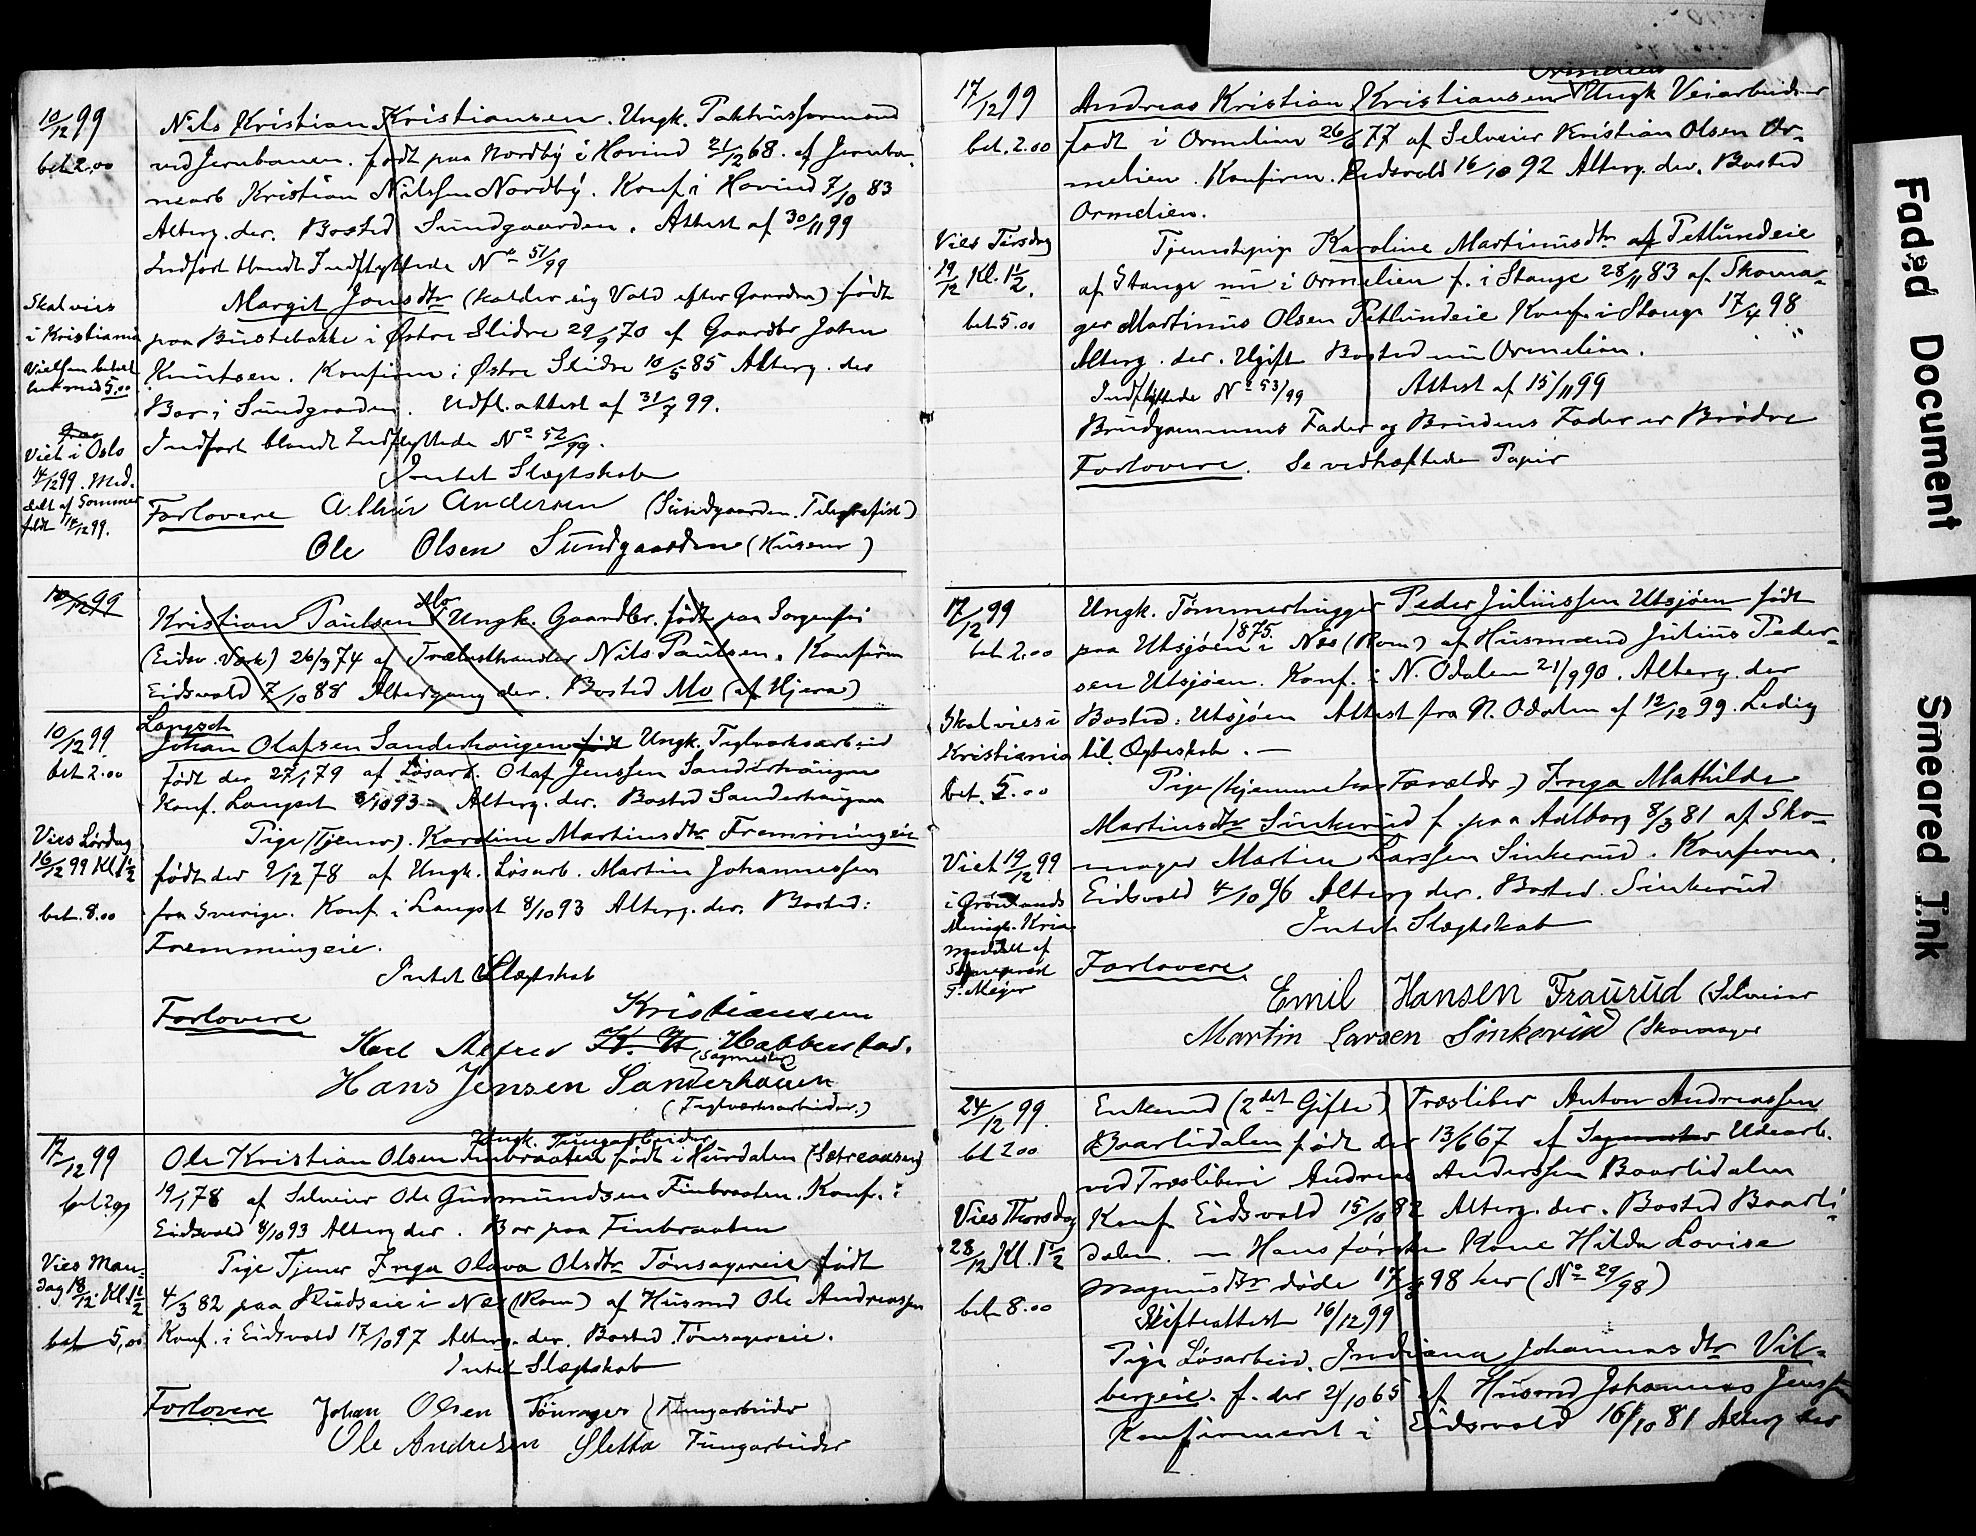 10/12 99
bet 2.00
Nils Kristian Kristiansen. Ungk. Pakhusformand
ved Jernbanen. født paa Nordby i Hovind 21/12 68. af Jernba-
nearb Kristian Nilssen Nordby. Konf. i Hovind 7/10 83
Alterg. der. Bosted Sundgaarden. Attest af 30/11 99
Indført blandt Indflyttede No 51/99
Skal vies
i Kristiania
Vielsen betalt
med 5,00
Margit Jonsdtr (kalder sig Vold efter Gaarden) født
paa Bustebakke i Østre Slidre 29/9 70 af Gaardbr John
Knutsen. Konfirm i Østre Slidre 10/5 85 Alterg. der
Bor i Sundgaarden. Udfl. attest af 31/7 99.
Indført blandt Indflyttede No 52/99.
Viet i Oslo
14/12 99. Med-
delt af Sommer
feldt 14/12 99.
Intet Slægtskab
Forlovere Althur Andersen (Sundgaarden. Telegrafist)
Ole Olsen Sundgaarden (Huseier)
10/12 99
Kristian Paulsen Mo Ungk. Gaardbr. født paa Sorgenfri
(Eidsv Værk) 26/3 74 af Trælasthandler Nils Paulsen. Konfirm
Eidsvold 7/10 88 Altergang der. Bosted Mo (af Hjera)
10/12 99
bet 2.00
Langset
Johan Olafsen Sanderhaugen født Ungk. Teglværksarbeid
født der 27/1 79 af Løsarb. Olaf Jenssen Sanderhaugen
Konf. Langset 8/10 93 Alterg. der. Bosted Sanderhaugen
Vies Lørdag
16/12 99 Kl. 1 1/2
bet. 8.00
Pige (Tjener). Karoline Martinsdtr Fremmingeie
født der 9/12 78 af Ungk. Løsarb. Martin Johannessen
fra Sverige. Konf. i Langset 8/10 93 Alterg. der. Bosted:
Fremmingeie.
Intet Slægtskab
Forlovere Kristiansen
Karl Alfred K. N. Habberstad.
(Sagmester)
Hans Jensen Sanderhauen
(Teglværksarbeider.)
17/12 99
bet 2,00
Ungk. Tungarbeider
Ole Kristian Olsen Finbraaten født i Hurdalen (Sætreaasen)
19/1 78 af Selveier Ole Gudmundsen Finbraaten. Konf. i
Eidsvold 8/10 93 Alterg der. Bor paa Finbraaten
Vies Man-
dag 18/12. Kl. 1 1/2
bet 5,00
Pige Tjener Inga Olava Olsdtr Tønsagereie født
4/3 82 paa Rudseie i Nes (Rom) af Husmd Ole Andreassen
Konf. i Eidsvold 17/10 97 Alterg. der. Bosted Tønsagereie.
Intet Slægtskab
Forlovere Johan Olsen Tønsager (Tungarbeider)
Ole Andresen Sletta Tungarbeider
17/12 99
bet. 2.00
Ormelien
Andreas Kristian Kristiansen Ungk Veiarbeider
født i Ormelien 26/6 77 af Selveier Kristian Olsen Or-
melien. Konfirm. Eidsvold 16/10 92 Alterg. der. Bosted
Ormelien.
Vies Tirsdag
19/12 Kl. 1 1/2.
bet 5.00
Tjenestepige Karoline Martinusdtr af Petlundeie
af Stange nu i Ormelien f. i Stange 28/11 83 af Skoma-
ger Martinus Olsen Petlundeie Konf. i Stange 17/4 98
Alterg. der. Ugift Bosted nu Ormelien.
Indflyttede No 53/99 Attest af 15/11 99
Brudgommens Fader og Brudens Fader er Brødre
Forlovere. Se vedhæftede Papir
17/12 99
bet. 2.00
Ungk. Tømmerhugger Peder Juliussen Utsjøen født
1875.
paa Utsjøen i Nes (Rom) af Husmand Julius Peder-
sen Utsjøen. Konf. i N. Odalen 21/9 90. Alterg. der
Bosted: Utsjøen Attest fra N. Odalen af 12/12 99. Ledig
til Ægteskab. —
Skal vies i
Kristiania
bet. 5.00
Pige (hjemme hos Forældr.) Inga Mathilde
Martinsdtr Sinkerud f. paa Aalborg 8/3 81 af Sko-
mager Martin Larssen Sinkerud. Konferm.
Eidsvold 4/10 96 Alterg der. Bosted. Sinkerud
Viet 19/12 99
i Grønlands
Menigh. Kria
meddelt af
Sogneprest
T. Meyer
Intet Slægtskab
Forlovere.
Emil Hansen Fraurud (Selveier
Martin Larsen Sinkerud (Skomager
24/12 99.
bet 2 00
Enkemd (2det Gifte) Træsliber Anton Andreassen
Baarlidalen født der 13/6 67 af Sagmester Udearb.
ved Træsliberi Andreas Anderssen Baarlidalen
Konf. Eidsvold 15/10 82 Alterg. der. Bosted Baarli-
dalen. — Hans første Kone Hilda Lovise
Magnusdtr døde 17/8 98 her (No 29/98)
Skifteattest 16/12 99
Vies Thorsdag
28/12 Kl. 1 1/2
bet 8.00
Pige Løsarbeid. Indiana Johannesdtr Vil-
bergeie. f. der 2/10 65 af Husmd Johannes Jenssen
Konfirmeret i Eidsvold 16/10 81 Alterg der
Faded Document
Smeared Ink